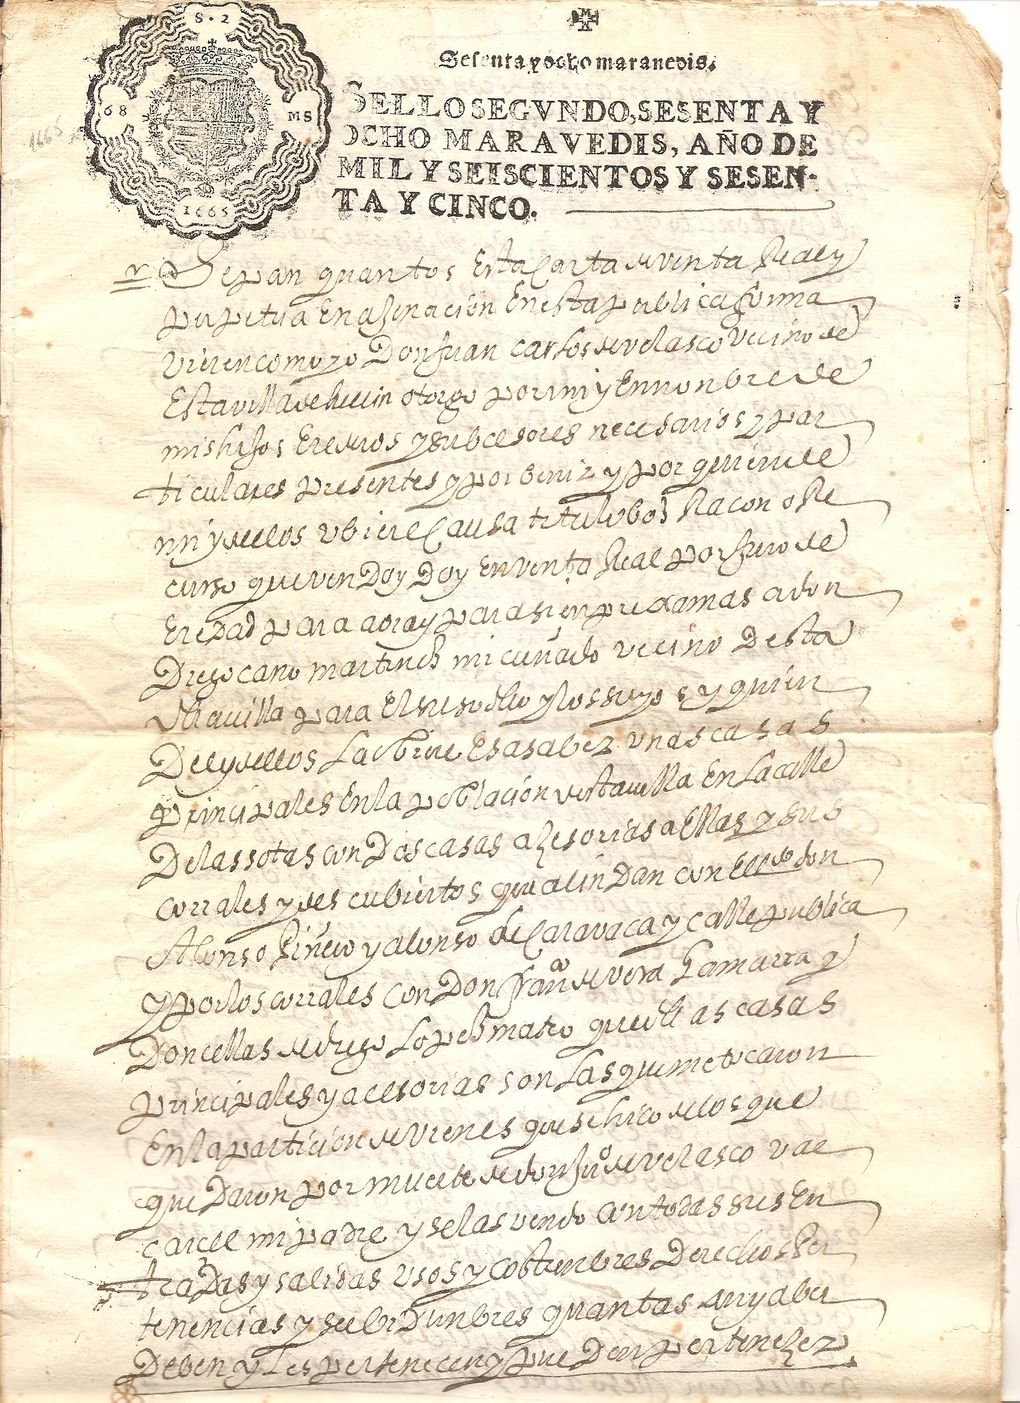 S. 2
68
MS
1665
1665
Sesenta y ocho maravedis.
SELLO SEGVNDO, SESENTA Y
OCHO MARAVEDIS, AÑO DE
MIL Y SEISCIENTOS Y SESEN-
TA Y CINCO.
Sepan quantos Esta Carta de venta Real y
perpetua Enajenacion En esta publica forma
vieren como yo Don Juan Carlos de velasco vecino de
Esta villa de hellin otorgo por mi y En nonbre de
mis hijos Erederos y subcesores necesarios y par
ticulares presentes y por benir y por quien de
mi y dellos ubiere Causa titulo boz Racon o Re
curso que vendo y Doy En venta Real por Juro de
Eredad para aora y para sienpre xamas a don
Diego cano martinez mi cuñado vecino Desta
dha villa para El suso dho y los suyos y quien
Del y dellos La obiere Es a saber unas casas
principales En la poblacion desta villa En La calle
De las sotas con Dos casas azesorias a Ellas y sus
corrales y descubiertos que alindan con de don
Alonso Piñero y alonso de Caravaca y calle publica
y por los corrales con Don franco de vera Gamarra y
Doncellas de diego Lopez mateo que dhas casas
principales y acesorias son Las que me tocaron
En la particion de vienes que se hico de los que
quedaron por muerte de don Juo de velasco val
carcel mi padre y se las vendo con todas sus En
tradas y salidas usos y costunbres Derechos Per
tenencias y serbidunbres quantas an y aber
Deben y Les pertenecen y pueden pertenezer